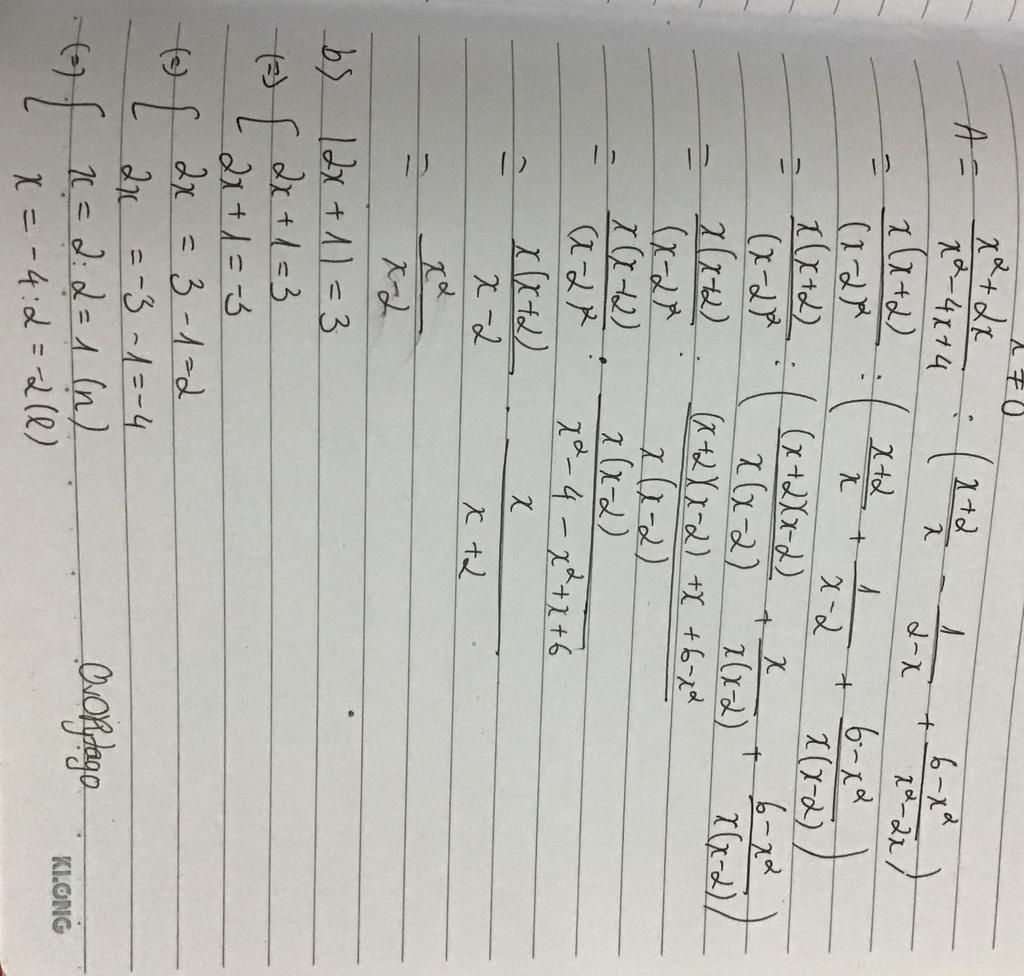 x ≠ 0
A = \frac{x² + 2x}{x² - 4x + 4} : ( \frac{x+2}{x} - \frac{1}{2-x} + \frac{6-x²}{x²-2x} )
= \frac{x(x+2)}{(x-2)²} : ( \frac{x+2}{x} + \frac{1}{x-2} + \frac{6-x²}{x(x-2)} )
= \frac{x(x+2)}{(x-2)²} : ( \frac{(x+2)(x-2)}{x(x-2)} + \frac{x}{x(x-2)} + \frac{6-x²}{x(x-2)} )
= \frac{x(x+2)}{(x-2)²} : \frac{(x+2)(x-2) + x + 6-x²}{x(x-2)}
= \frac{x(x+2)}{(x-2)²} . \frac{x(x-2)}{x² - 4 - x² + x + 6}
= \frac{x(x+2)}{x-2} . \frac{x}{x+2}
= \frac{x²}{x-2}
b) |2x + 1| = 3
(=) [ 2x + 1 = 3
2x + 1 = -3
(=) [ 2x = 3 - 1 = 2
2x = -3 - 1 = -4
(=) [ x = 2 : 2 = 1 (n)
x = -4 : 2 = -2 (l)
KLONG